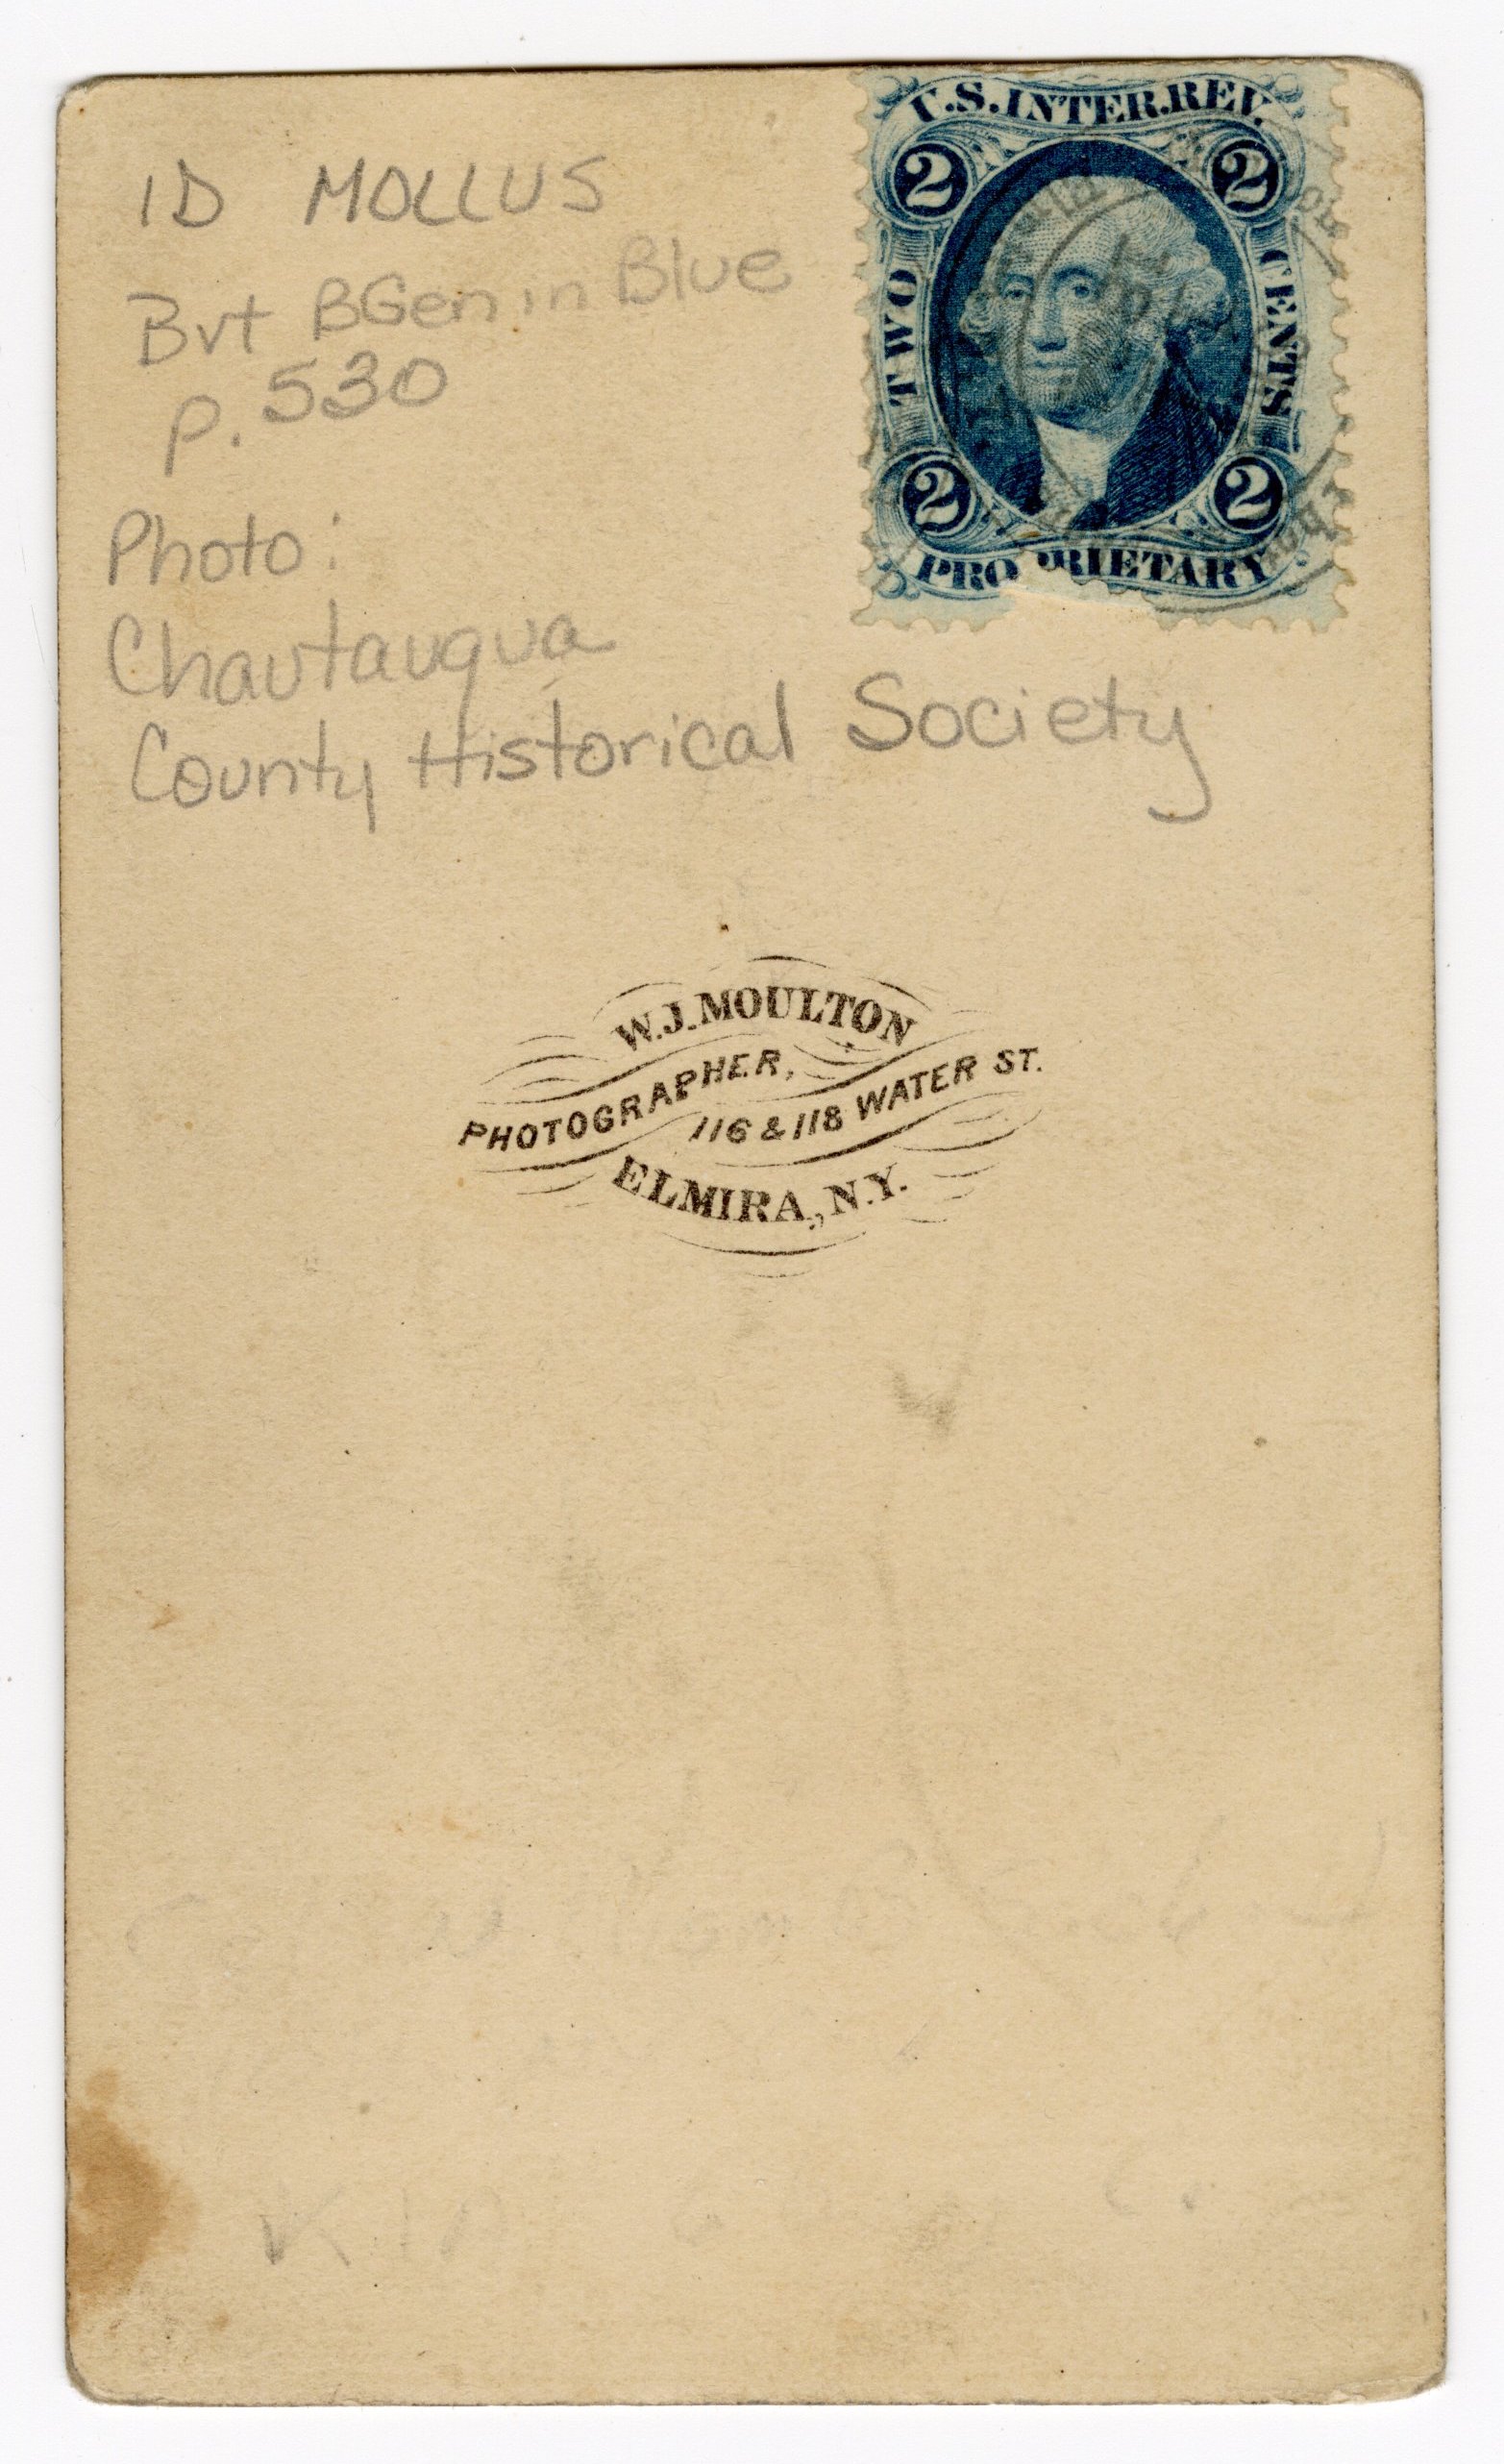 ID MOLLUS
Bvt BGen in Blue
P. 530
Photo:
Chautauqua
County Historical Society
U.S. INTER. REV.
2 2
TWO CENTS
2 2
PROPRIETARY
W. J. MOULTON
PHOTOGRAPHER,
116 & 118 WATER ST.
ELMIRA, N.Y.